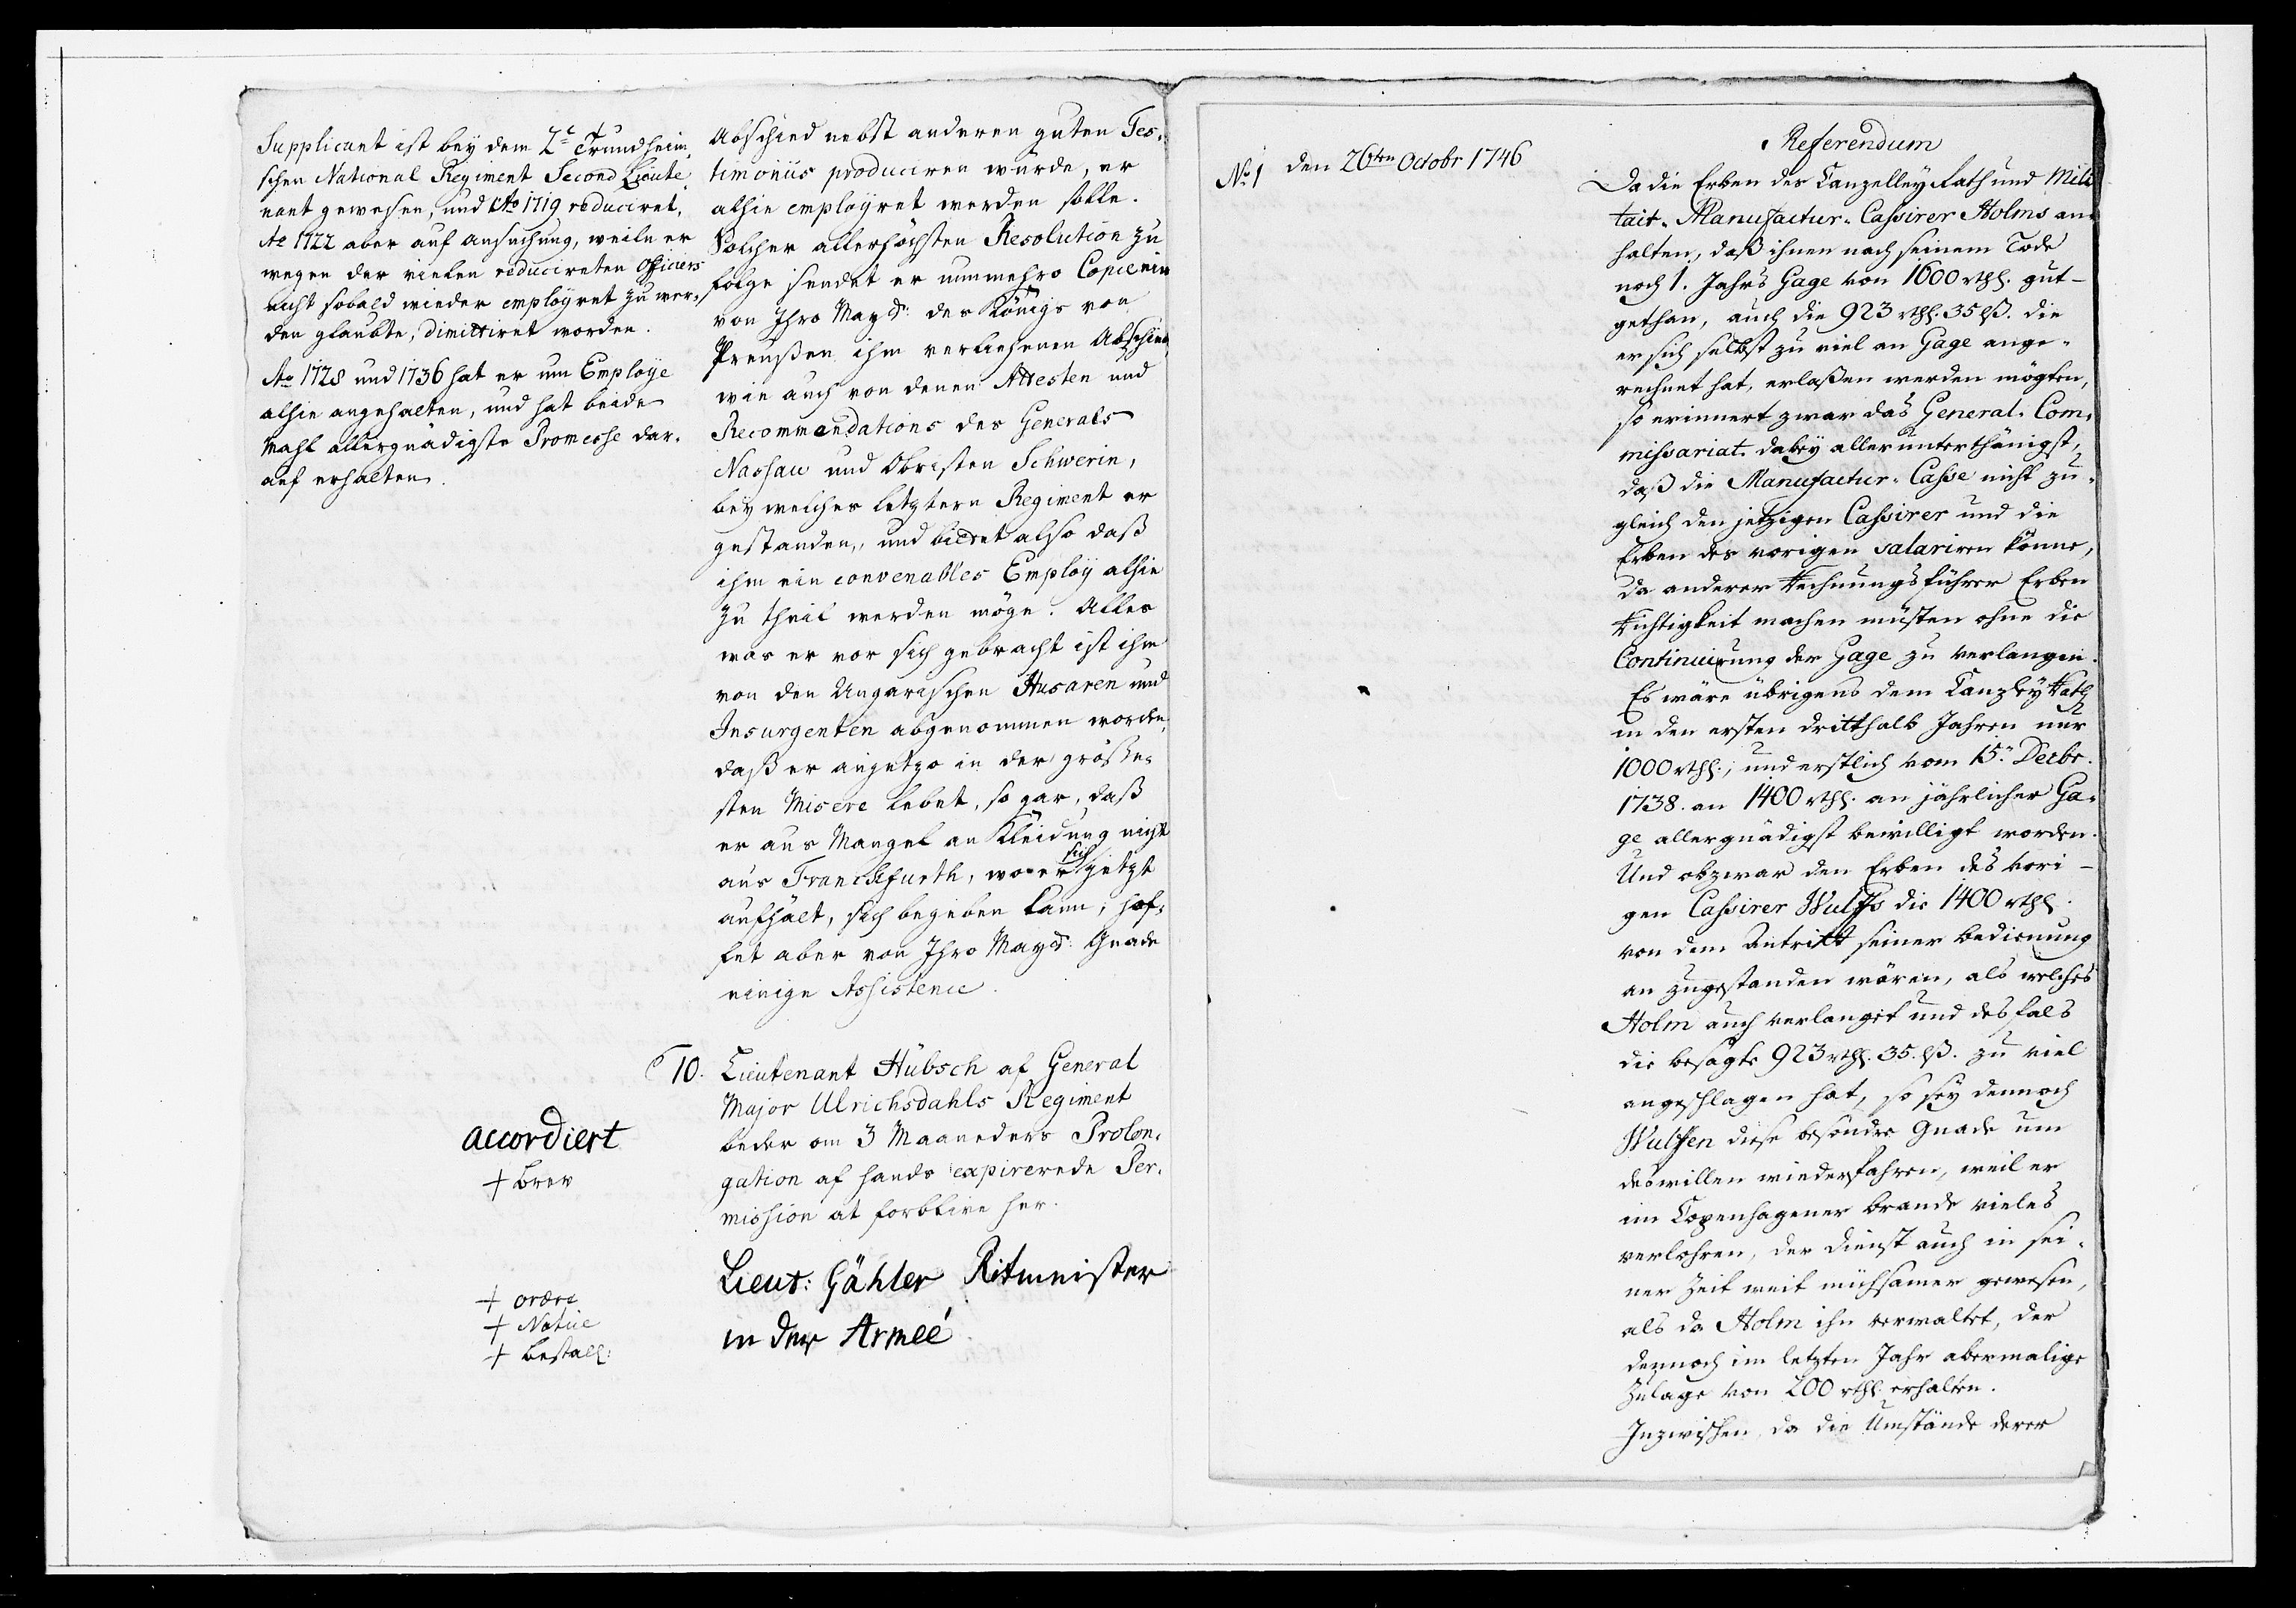 Supplicant ist bey dem 2e Trundheim.
schen National Regiment Second Lieute
nant gewesen, und Ao 1719 reduciret,
Ao 1722 aber auf ansuchung, weiln er
wegen der vielen reducireten Officiers
nicht sobald wieder employret zu wer,
den glaubte, dimittiret worden.
Ao 1728 und 1736 hat er um Employe
alhie angehalten, und hat beide
mahl allergnädigste Promesse dar,
auf erhalten.
Abschied nebst anderen guten Tes,
timoniis produciren würde, er
alhie employret werden solle.
Solcher allerhöchsten Resolution zu
folge sendet er nunmehro Copie ein
von Ihro Mayst: des Königs von
Preußen ihm verliehenen Abschied,
wie auch von denen Attesten und
Recommendations des Generals
Nassau und Obristen Schwerin,
bey welches letztern Regiment er
gestanden, und bietet also daß
ihm ein convenables Employ alhie
zu theil werden möge. Alles
was er vor sich gebracht ist ihm
von den Ungarischen Husaren und
Insurgenten abgenommen worden,
daß er anjetzo in der grösse,
sten Misere lebet, so gar, daß
er aus Mangel an Kleidung nicht
aus Franckfurth, wo er sich jetzt
aufhält, sich begeben kann; hof,
fet aber von Ihro Mayst: Gnade
einige Assistence.
10. Lieutenant Hübsch af General
Major Ulrichsdahls Regiment
beder om 3 Maaneders Prolon,
gation af hands expirerede Per,
mission at forblive her.
accordiert
+ brev
Lieut: Gähler Ritmeister
in der Armeé
+ ordre
+ Notice
+ bestall:
No 1 den 26ten Octobr 1746
Referendum
Da die Erben des Canzelley Rath und Mili
tair-Manufactur-Cassirer Holms an,
halten, daß ihnen nach seinem Tode
noch 1. Jahrs Gage von 1600 rthl. gut-
gethan, auch die 923 rthl. 35 lß. die
er sich selbst zu viel an Gage ange,
rechnet hat, erlaßen werden mögten,
so erinnert zwar das General-Com,
missariat dabey allerunterthänigst,
daß die Manufactur-Casse nicht zu,
gleich den jetzigen Cassirer und die
Erben des vorigen salariren könne,
da anderer Rechnungsführer Erben
Richtigkeit machen müsten ohne die
Continuirung der Gage zu verlangen.
Es wäre übrigens dem Canzley Rath
in den ersten dritthalb Jahren nur
1000 rthl., und erstlich vom 15n Decbr.
1738. an 1400 rthl. an jährlicher Ga,
ge allergnädigst bewilligt worden.
Und obzwar den Erben des vori-
gen Cassirer Wulffs die 1400 rthl.
von dem Antritt seiner bedienung
an zugestanden wären, als welches
Holm auch verlanget und desfals
die besagte 923 rthl. 35. lß. zu viel
angeschlagen hat, so sey dennoch
Wulffen diese besondre Gnade um
deswillen wiederfahren, weil er
im Copenhagener brande vieles
verlohren, der dienst auch in sei,
ner Zeit weit mühsamer gewesen,
als da Holm ihn verwaltet, der
dennoch im letzten Jahr abermalige
Zulage von 200 rthl. erhalten.
Inzwischen, da die Umstände derer